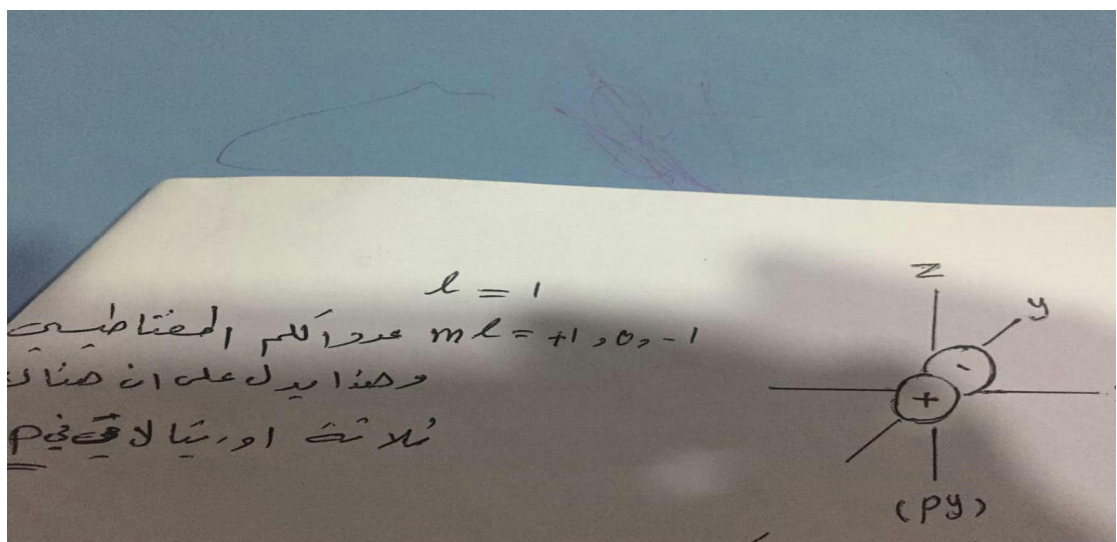 l = 1
عدد الكم المغناطيسي ml = +1, 0, -1
وهذا يدل على ان هناك
ثلاثة اوربتالات في p
Z
y
-
+
(Py)